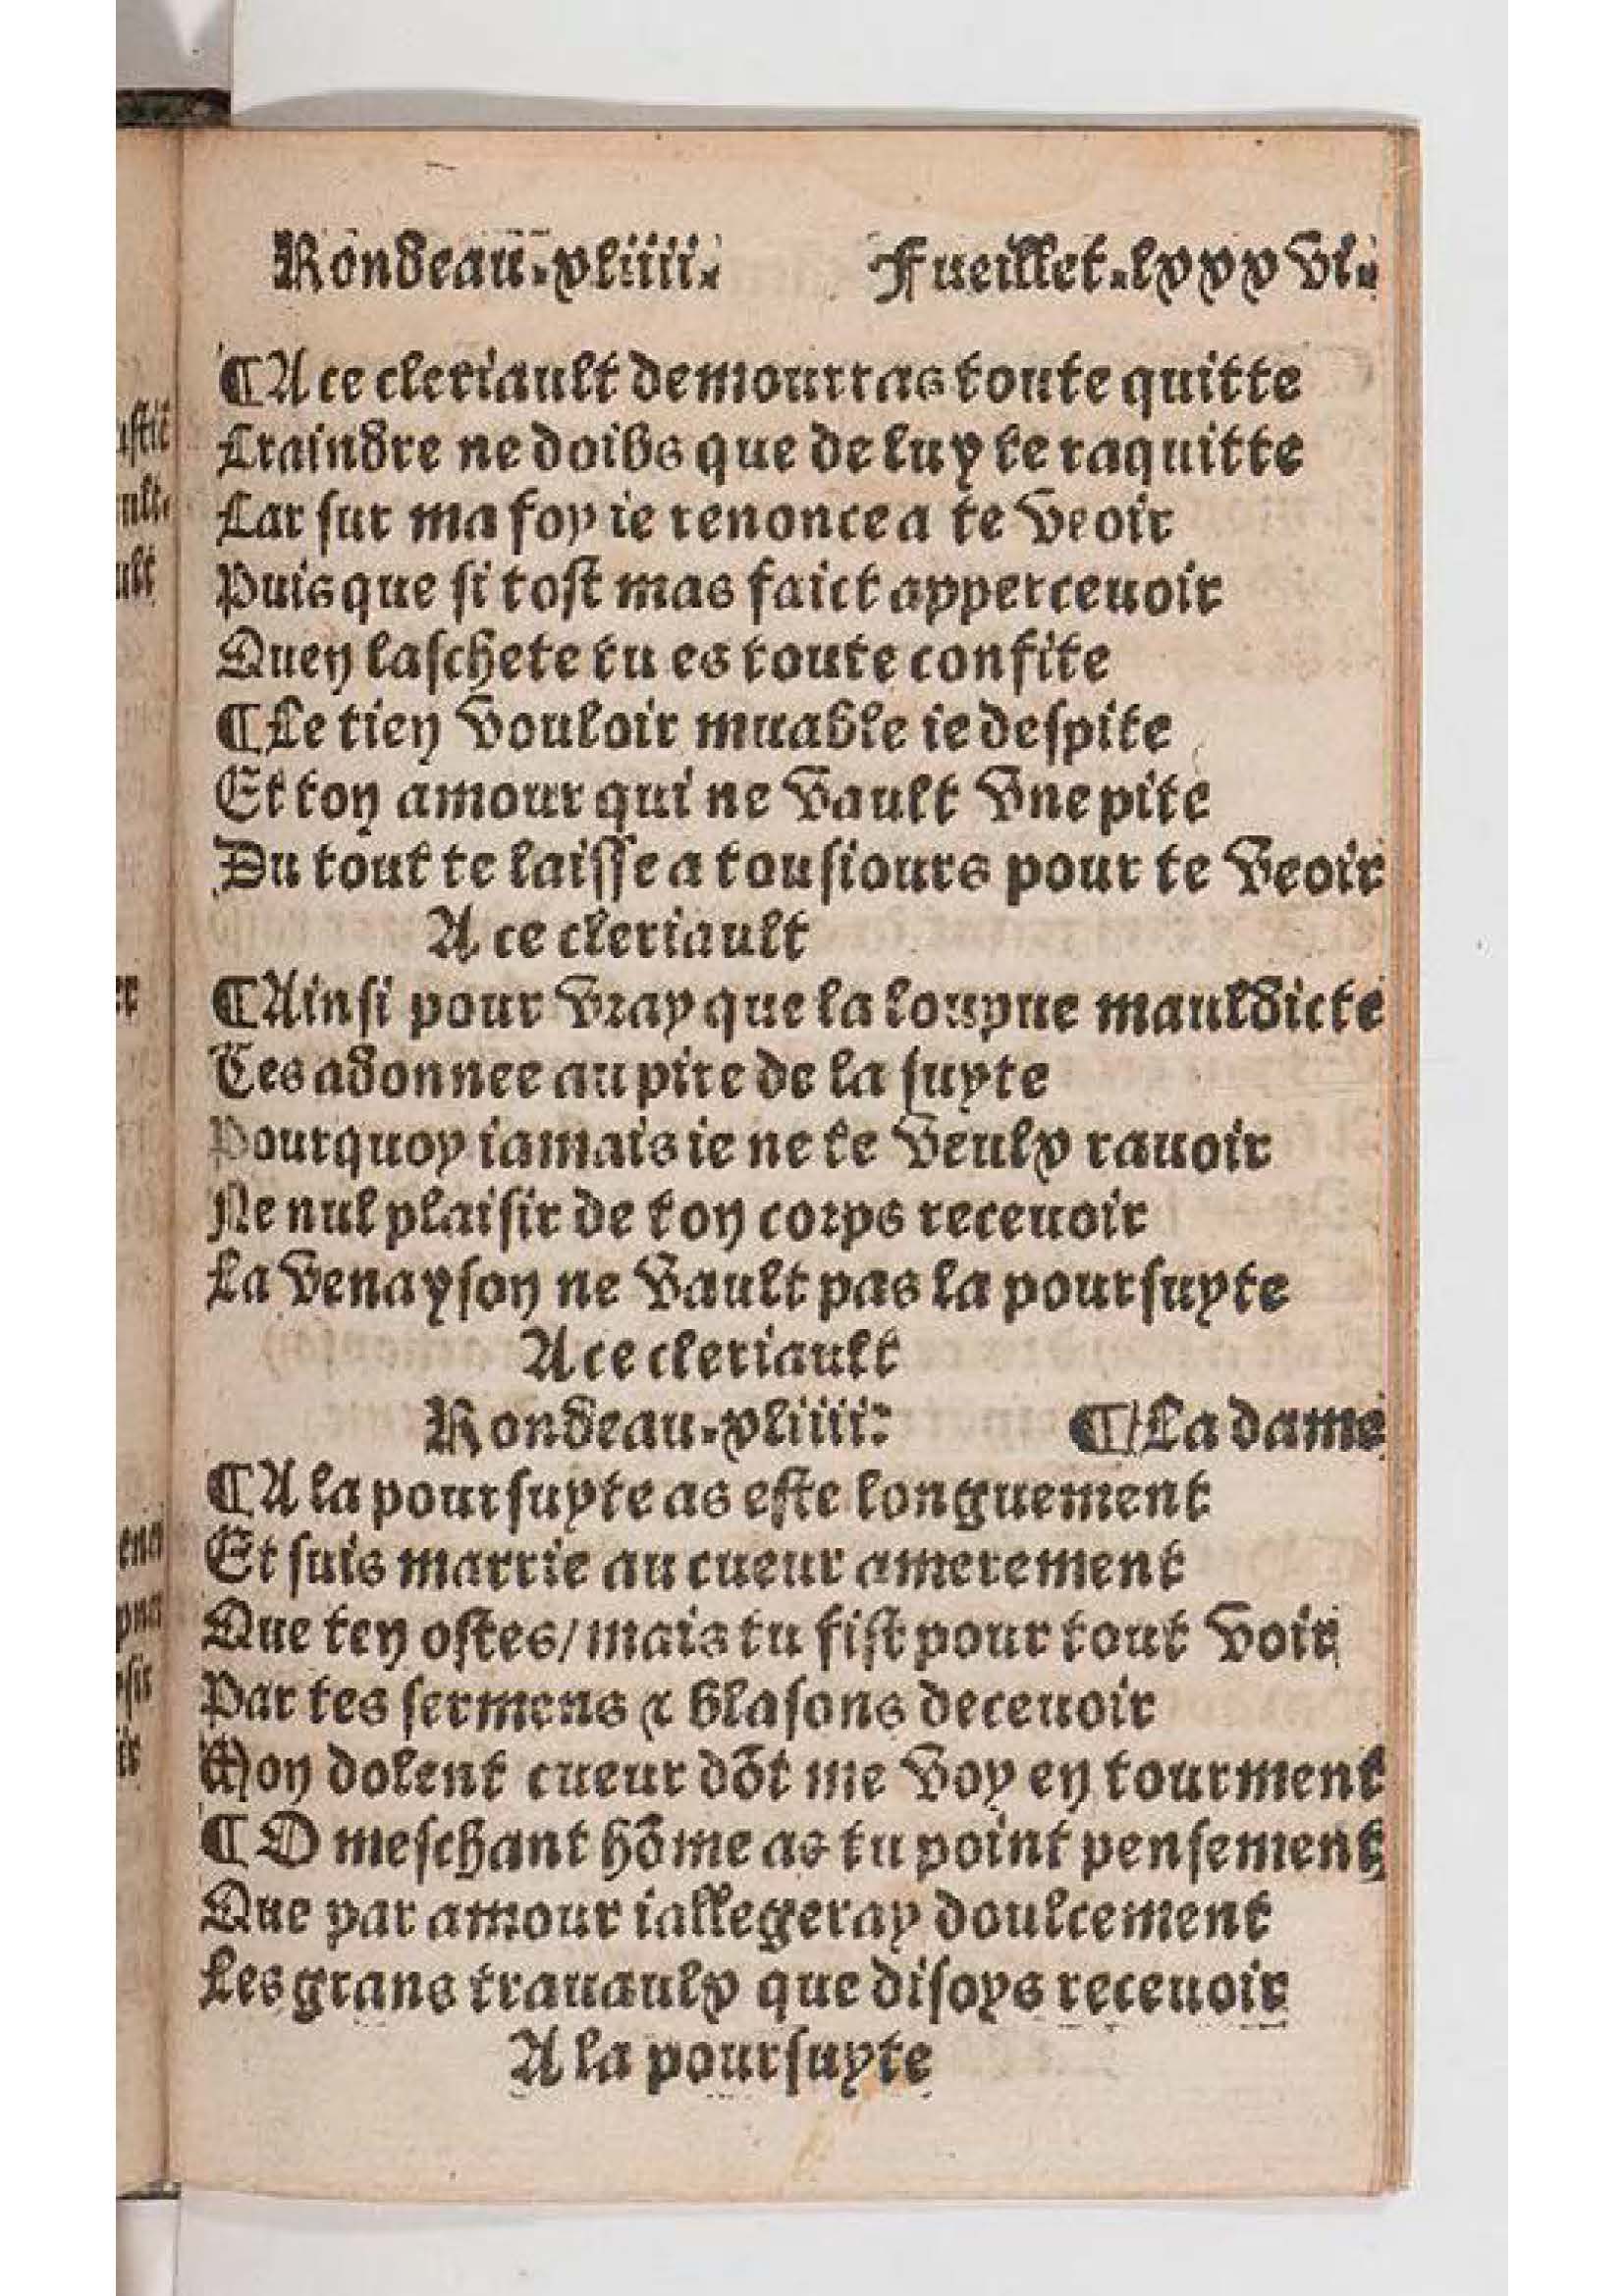 Rondeau.xliiii. Fueillet.lxxxvi.
¶A ce cleriault demourras toute quitte
Craindre ne doibs que de luy te raquitte
Car sur ma foy ie renonce a te veoir
Puis que si tost mas faict apperceuoir
Quen laschete tu es toute confite
¶Le tien vouloir muable ie despite
Et ton amour qui ne vault vne pite
Du tout te laisse a tousiours pour te veoir
A ce cleriault
¶Ainsi pour vray que la louyue mauldicte
Tes adonnee au pire de la suyte
Pourquoy iamais ie ne te veulx rauoir
Ne nul plaisir de ton corps receuoir
La venayson ne vault pas la poursuyte
A ce cleriault
Rondeau.xliiii. ¶La dame
¶A la poursuyte as este longuement
Et suis marrie au cueur amerement
Que ten ostes/mais tu fist pour tout voir
Par tes sermens & blasons deceuoir
Mon dolent cueur dõt me voy en tourment
¶O meschant hõme as tu point pensement
Que par amour iallegeray doulcement
Les grans trauaulx que disoys receuoir
A la poursuyte